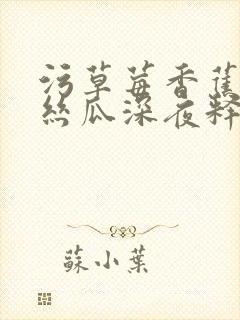 污草莓香蕉
丝瓜深夜释
蘇小葉